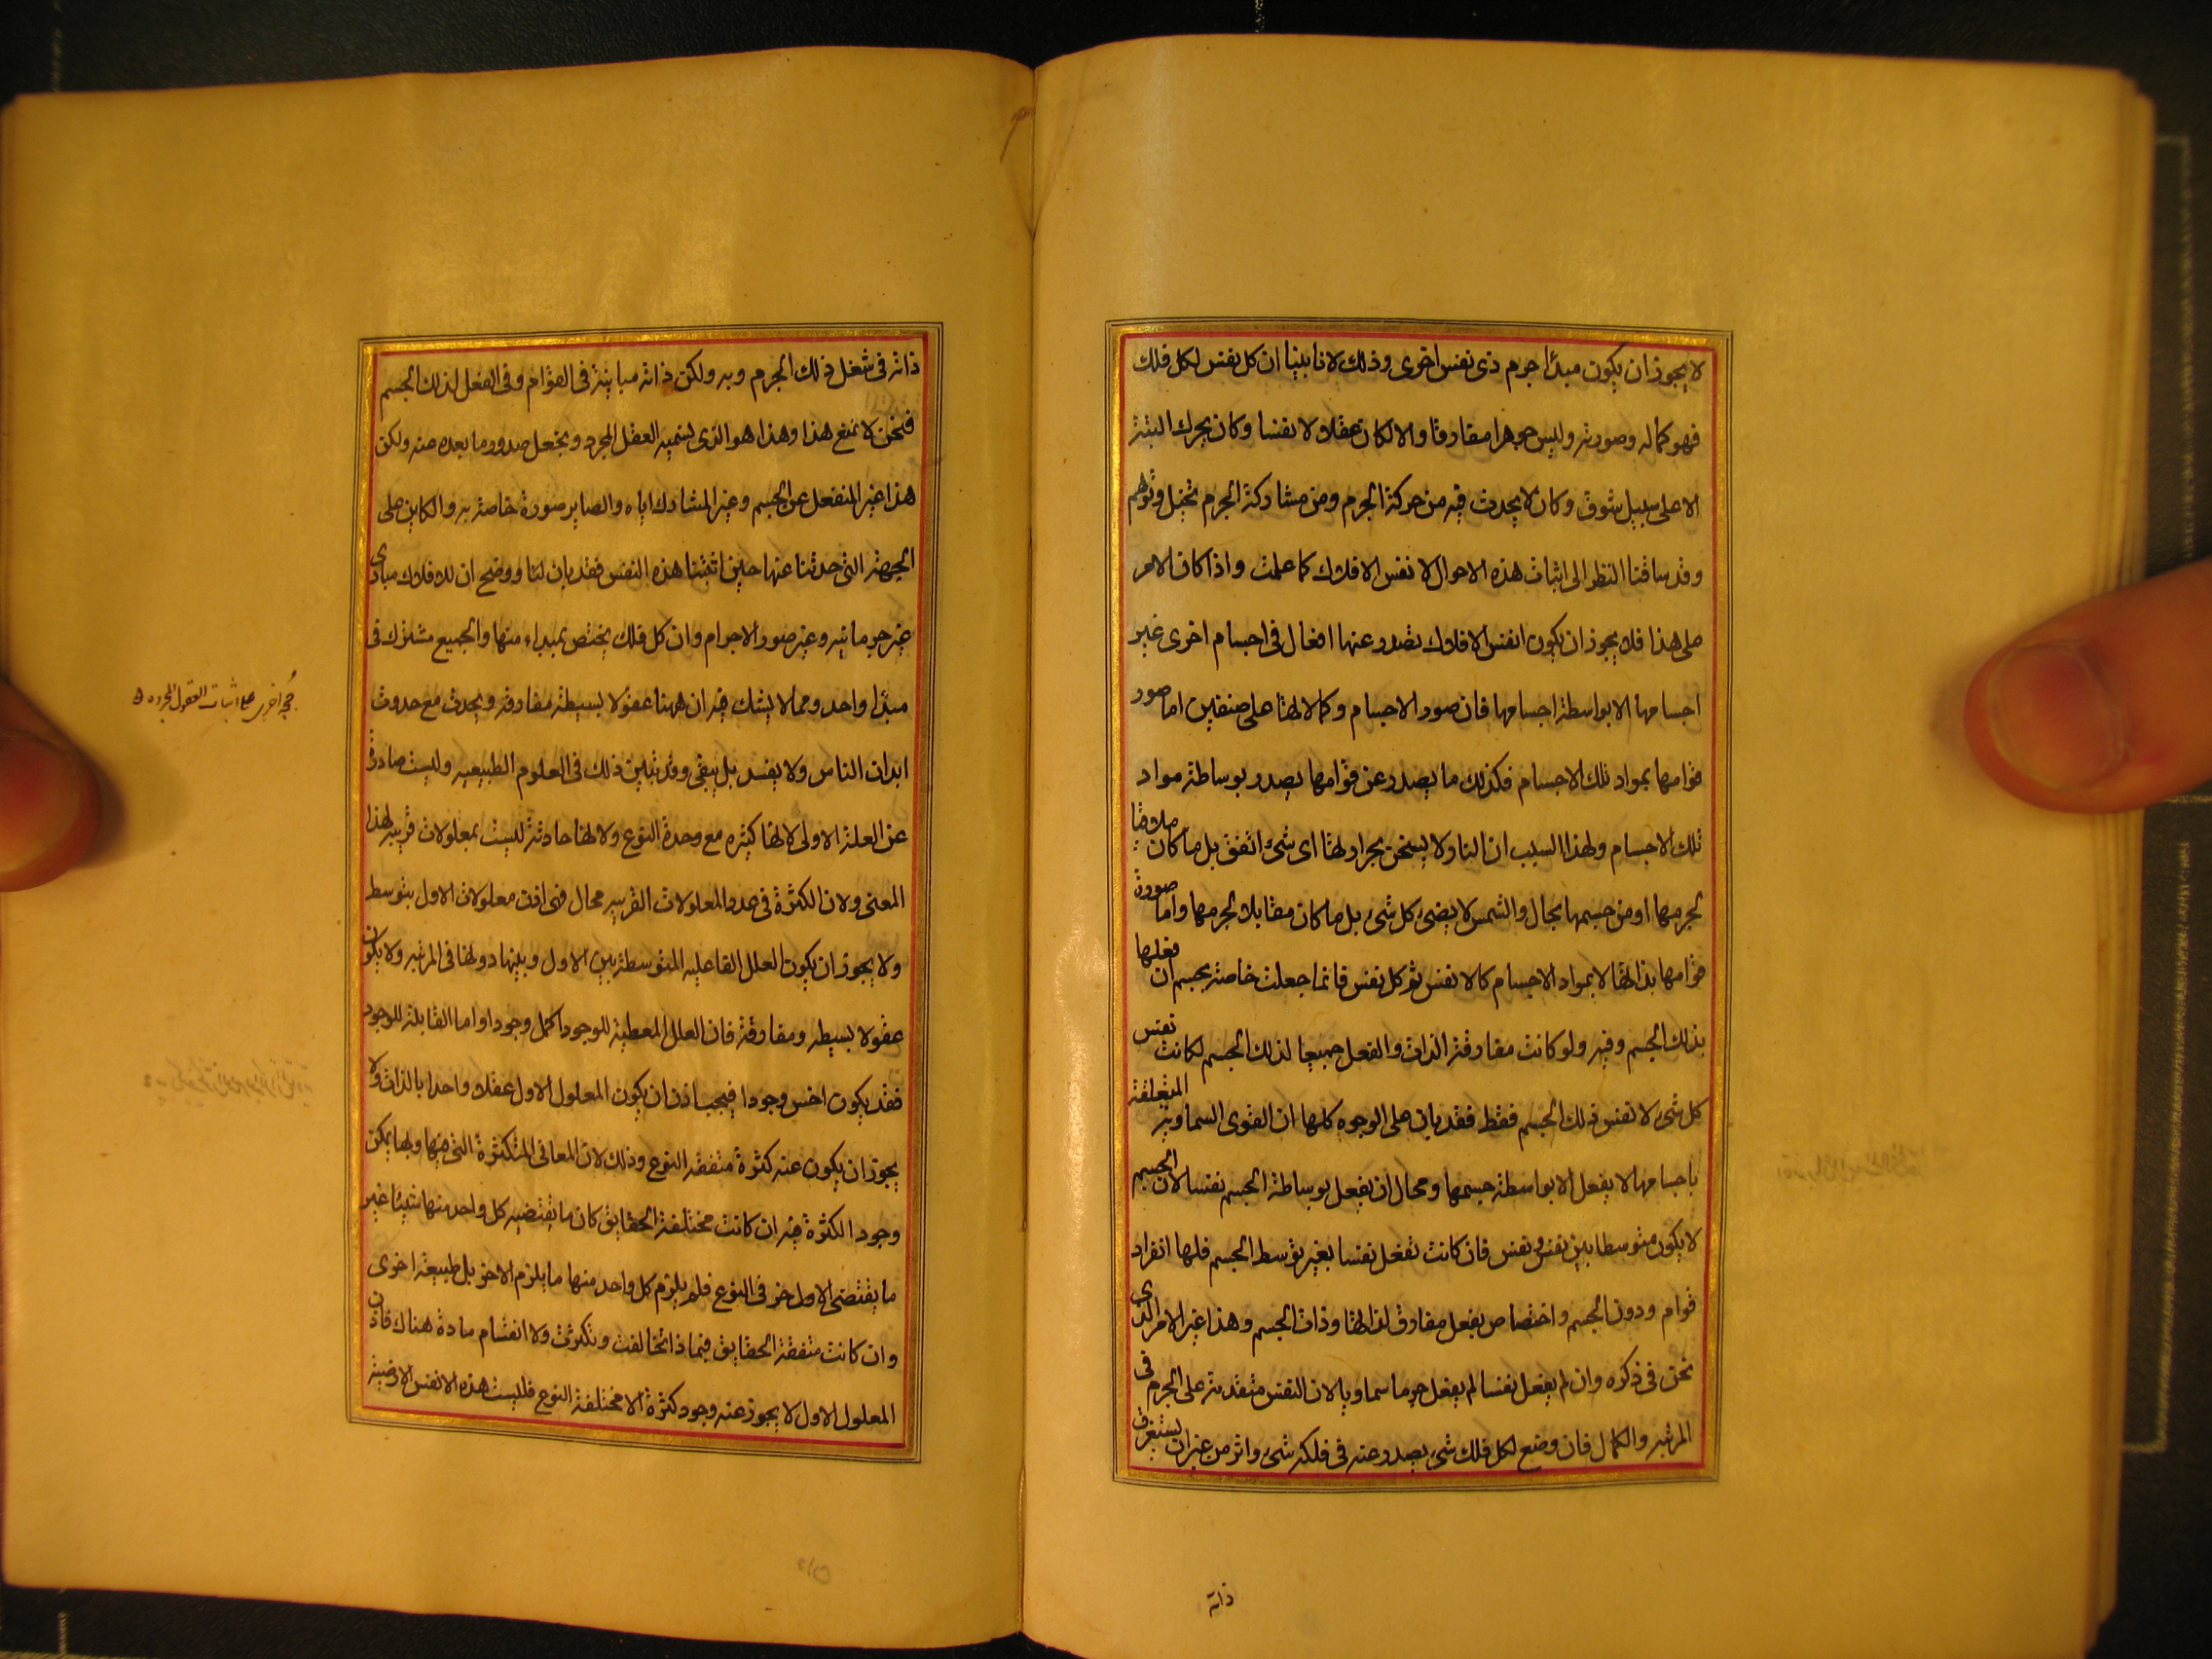 لا يجوز ان يكون مبدأ جرم ذى نفس اخرى وذلك لانا بينا ان كل نفس لكل فلك
فهو كماله وصورته وليس جوهرا مفارقا والا لكان عقلا لا نفسا وكان يحرك البتة
الا على سبيل شوق وكان لا يحدث فيه من حركة الجرم ومن مشاركة الجرم تخيل وتوهم
وقد ساقنا النظر الى اثبات هذه الاحوال لانفس الافلاك كما علمت واذا كان الامر
على هذا فلا يجوز ان يكون انفس الافلاك تصدر عنها افعال فى اجسام اخرى غير
اجسامها الا بواسطة اجسامها فان صور الاجسام وكمالاتها على صنفين اما صور
قوامها بمواد تلك الاجسام فكذلك ما يصدر عن قوامها يصدر بوساطة مواد
تلك الاجسام ولهذا السبب ان النار لا يسخن بحرارتها اى شئ اتفق بل ما كان ملاقيا
لجرمها او من جسمها بحال والشمس لا يضئ كل شئ بل ما كان مقابلا لجرمها واما صورة
قوامها بذاتها لا بمواد الاجسام كالانفس ثم كل نفس فانما جعلت خاصة بجسم ان فعلها
بذلك الجسم وفيه ولو كانت مفارقة الذات والفعل جميعا لذلك الجسم لكانت نفس
كل شئ لا نفس ذلك الجسم فقط فقد بان على الوجوه كلها ان القوى السماوية المتعلقة
باجسامها لا يفعل الا بواسطة جسمها ومحال ان يفعل بوساطة الجسم نفسا لان الجسم
لا يكون متوسطا بين نفس ونفس فان كانت تفعل نفسا بغير توسط الجسم فلها انفراد
قوام ودون الجسم واختصاص بفعل مفارق لذاتها وذات الجسم وهذا غير الامر الذى
نحن فى ذكره وان لم يفعل نفسا لم يفعل جرما سماويا لان النفس متقدمة على الجرم فى
المرتبه والكمال فان وضع لكل فلك شئ يصدر عنه فى فلكه شئ واثر من غير ان يستغرق
ذاته
ذاته فى شغل ذلك الجرم وبه ولكن ذاته مباينة فى القوام وفى الفعل لذلك الجسم
فنحن لا نمنع هذا وهذا هو الذى نسميه العقل المجرد ونجعل صدور ما بعده عنه ولكن
هذا غير المنفعل عن الجسم وغير المشارك اياه والصاير صورة خاصة به والكاين على
الجهة التى حدثنا عنها حين اثبتنا هذه النفس فقد بان لنا ووضح ان للافلاك مبادى
غير جرمانيه وغير صور الاجرام وان كل فلك يختص بمبداء منها والجميع مشترك فى
مبدأ واحد ومما لا يشك فيه ان ههنا عقولا بسيطة مفارقه ويحدث مع حدوث
ابدان الناس ولا يفسد بل يبقى وقد تبين ذلك فى العلوم الطبيعيه وليست صادرة
عن العلة الاولى لانها كثيره مع وحدة النوع ولانها حادثة ليست بمعلولات قريبه لهذا
المعنى ولان الكثرة فى عدد المعلولات القريبه محال فهى اذن معلولات الاول بتوسط
ولا يجوز ان يكون العلل الفاعليه المتوسطة بين الاول وبينها دونها فى المرتبه ولا يكون
عقولا بسيطه ومفارقة فان العلل المعطية للوجود اكمل وجودا واما القابلة للوجود
فقد يكون اخس وجودا فيجب اذن ان يكون المعلول الاول عقلا واحدا بالذات ولا
يجوز ان يكون عنه كثرة متفقه النوع وذلك لان المعانى المتكثرة التى فيها وبها يمكن
وجود الكثرة فيه ان كانت مختلفة الحقايق كان ما يقتضيه كل واحد منها شيئا غير
ما يقتضى الاول خر فى النوع فلم يلزم كل واحد منها ما يلزم الاخر بل طبيعة اخرى
وان كانت متفقة الحقايق فبماذا تخالفت وتكثرت ولا انقسام مادة هناك فاذن
المعلول الاول لا يجوز عنه وجود كثرة الا مختلفة النوع فليست هذه الانفس الارضية
حجة اخرى على اثبات العقول المجرده